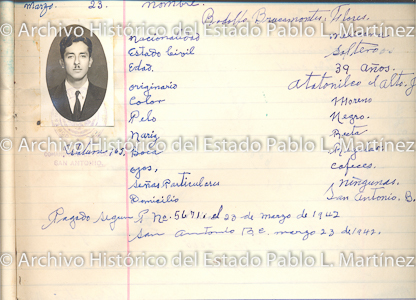 © Archivo Histórico del Estado Pablo L. Martínez
Marzo. 23. Nombre. Rodolfo Bracamontes Flores.
Nacionalidad
Estado Civil Soltero
Edad. 39 años.
originario Atotonilco el Alto, J
Color Moreno
Pelo Negro.
Nariz Recta
Estatura, 1.65. Boca
© Archivo Histórico del Estado Pablo L. Martínez
ojos, Cafeces
Señas Particulares ningunas.
Domicilio San Antonio, B.
Pagado segun R. No. 5671. el 20 de marzo de 1942
San Antonio B.C. marzo 23 de 1942.
© Archivo Histórico del Estado Pablo L. Martínez